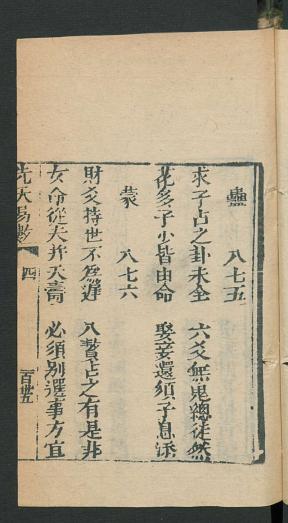 蠱 八七五
求子占之卦未全 六爻無鬼總徒然
花多子少皆由命 娶妾還須子息添
蒙 八七六
財爻持世不為遲 入贅占之有是非
女命從夫并夭壽 必須別選事方宜
先天易數 四 百卅五